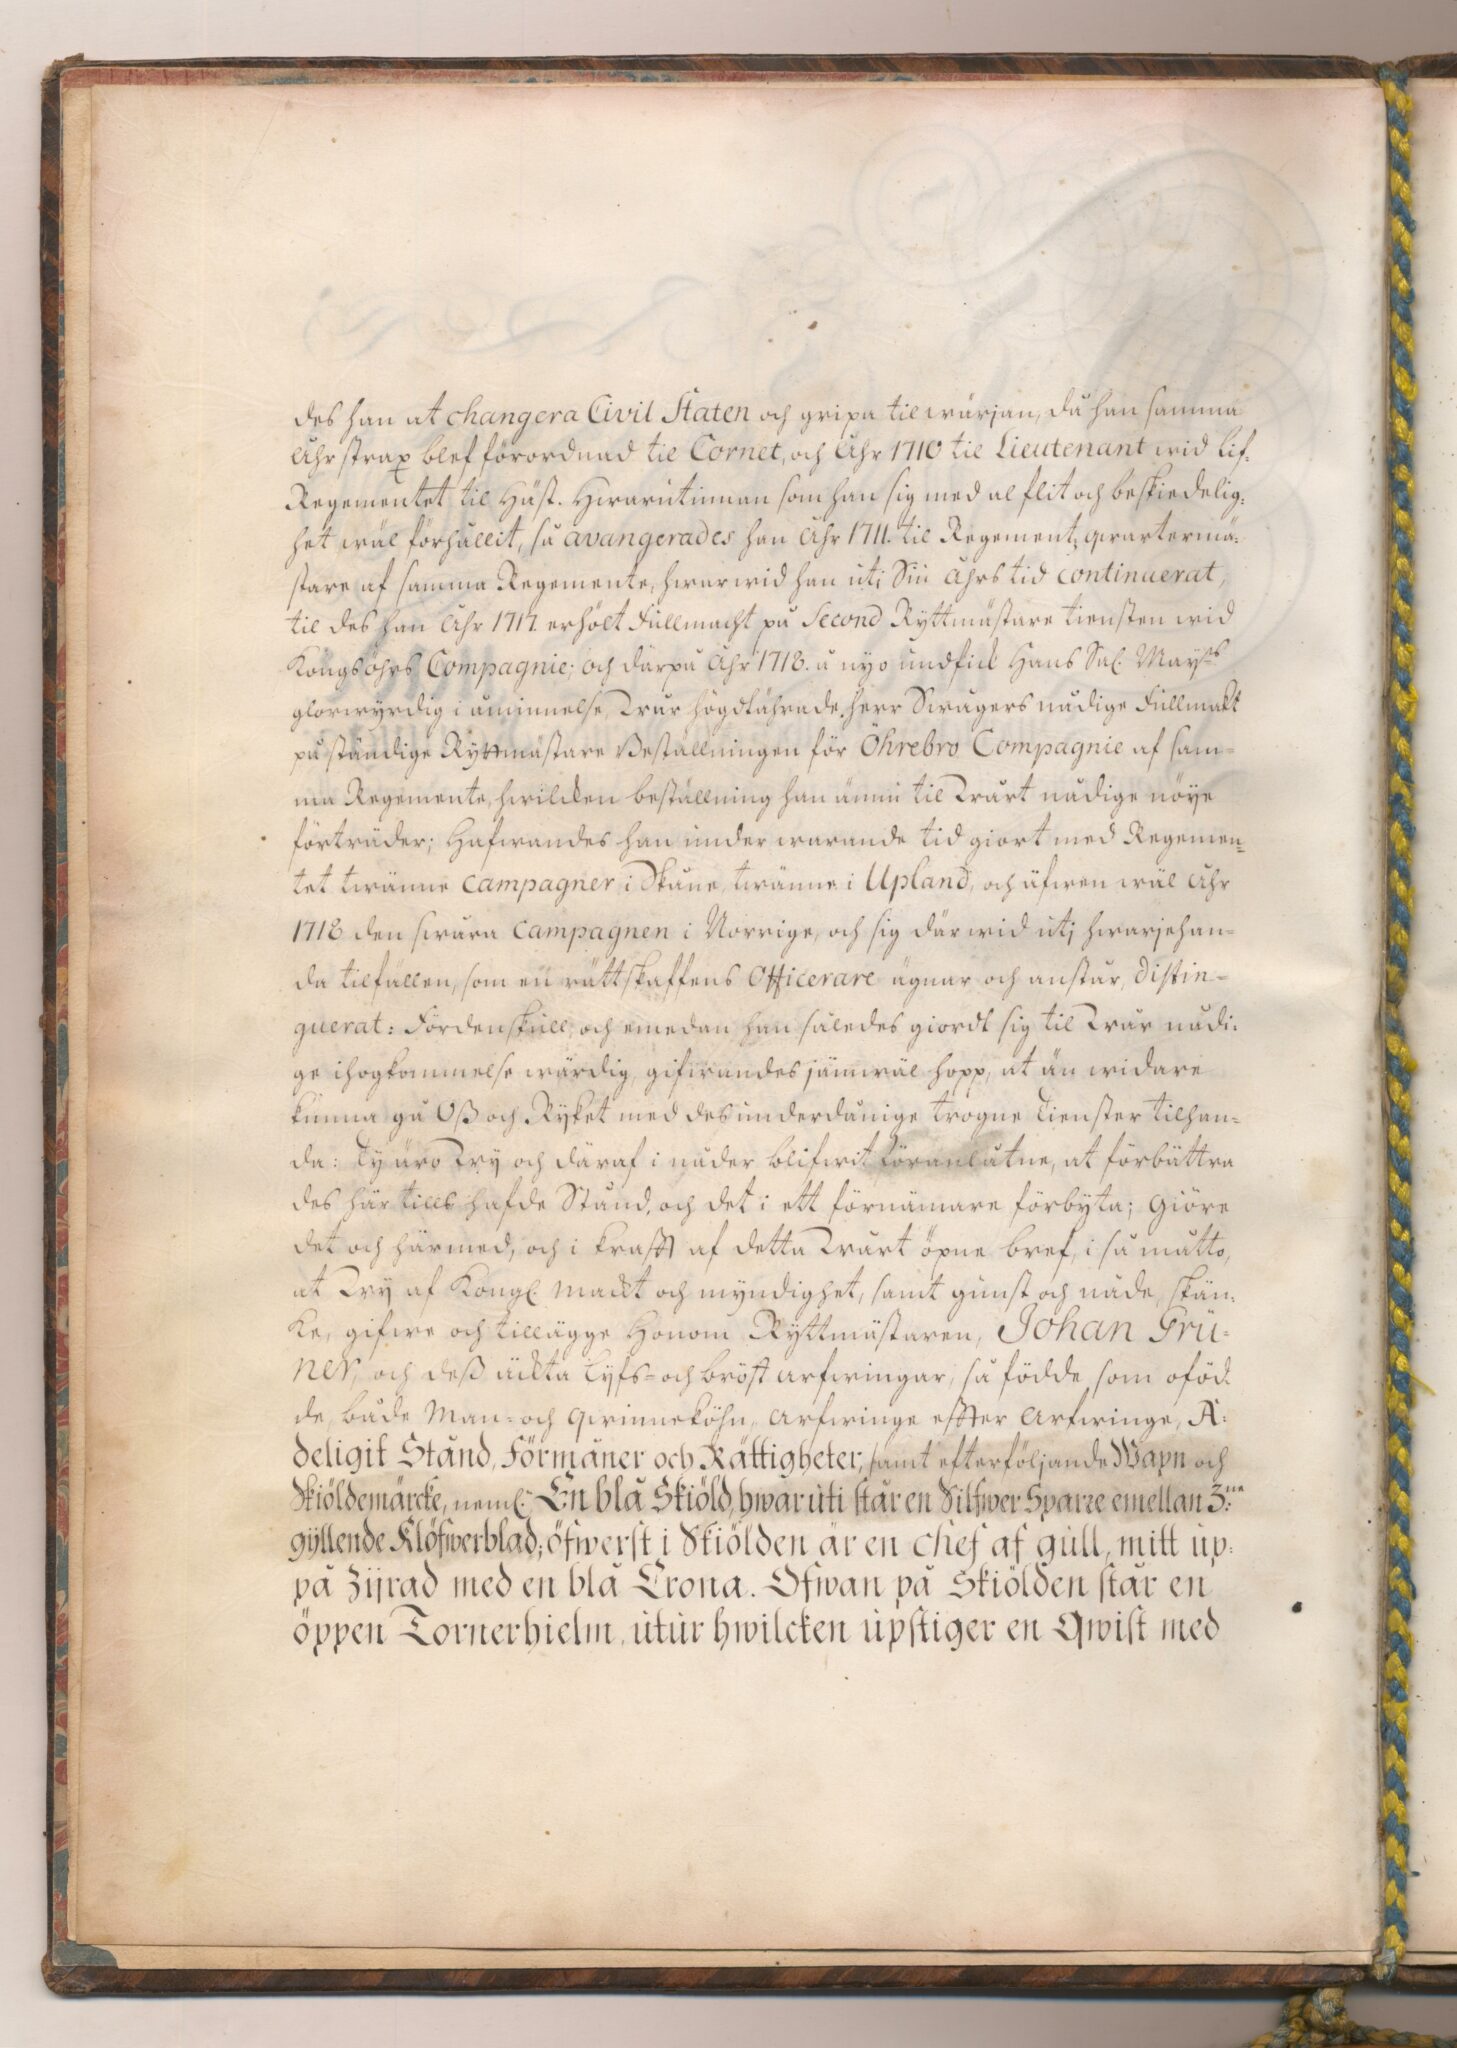 des han at changera Civil Staten och gripa til wärjan, då han samma
Åhr strax blef förordnad til Cornet, och Åhr 1710 til Lieutenant wid Lif-
Regementet til Häst. Hwarutinnan som han sig med al flit och beskiedelig-
het wäl förhållit, så avangerades han Åhr 1711. til Regements qwartermä-
stare af samma Regemente, hwarwid han uti Sin Åhrs tid continuerat,
til des han Åhr 1717. erhölt Fullmacht på Second Ryttmästare tiensten wid
Kongsöhrs Compagnie; och därpå Åhr 1718. å nyo undfick Hans Sal. May:ts
glorwyrdig i åminnelse, Wår högdtährade herr Swågers nådige Fullmakt
på ständige Ryttmästare Beställningen för Öhrebro Compagnie af sam-
ma Regemente, hwilcken beställning han ännu til Wårt nådige nöye
förträder; Hafwandes han under warande tid giort med Regemen-
tet twänne campagner i Skåne, twänne i Upland, och äfwen wäl Åhr
1718 den swåra campagnen i Norrige, och sig där wid utj hwarjehan-
da tilfällen, som en rättskaffens Officerare ägnar och anstår, distin-
guerat: Fördenskull, och emedan han således giordt sig til Wår nådi-
ge ihogkommelse wärdig, gifwandes jämwäl hopp, at än widare
kunna gå Oß och Ryket med des underdånige trogne Tienster tilhan-
da: Ty äro Wy och däraf i nåder blifwit föranlåtne, at förbättra
des här tills hafde Stånd, och det i ett förnämare förbyta; Giöre
det och härmed, och i krafft af detta Wårt öpne bref, i så måtto,
at Wy af Kongl. Mackt och myndighet, samt gunst och nåde, skän-
ke, gifwe och tillägge Honom Ryttmästaren, Johan Grü-
ner, och deß äckta Lyfs- och bröst arfwingar, så födde som oföd-
de, både Man- och Qwinneköhn, Arfwinge effter Arfwinge, A-
deligit Stånd, Förmåner och Rättigheter, samt efterföljande Wapn och
Skiöldemärcke, neml. En blå Skiöld, hwaruti står en Silfwer Sparre emellan 3:ne
gyllende Klöfwerblad; öfwerst i Skiölden är en chef af gull, mitt up-
på Zijrad med en blå Crona. Ofwan på Skiölden står en
öppen Tornerhielm, utur hwilcken upstiger en Qwist med